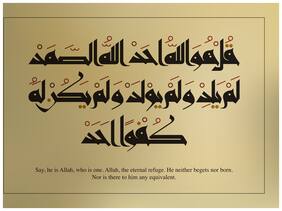 قُلْ هُوَ اللّٰهُ أَحَدٌ اللّٰهُ الصَّمَدُ
لَمْ يَلِدْ وَلَمْ يُولَدْ وَلَمْ يَكُنْ لَهُ
كُفُوًا أَحَدٌ
Say, he is Allah, who is one. Allah, the eternal refuge. He neither begets nor born.
Nor is there to him any equivalent.